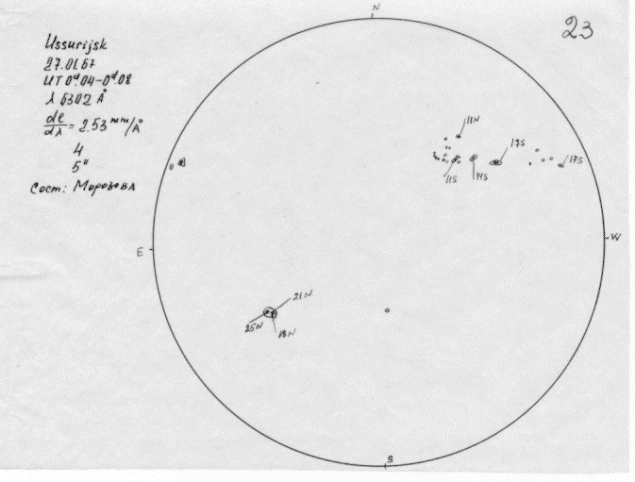 23
N
Ussurijsk
27.01.67
UT 0ᵈ.04-0ᵈ.08
λ 6302 Å
de/dλ = 2.53 mm/Å
4
5"
Сост: Морозова
11N
17S
17S
11S
14S
E
W
21N
25N
18N
S